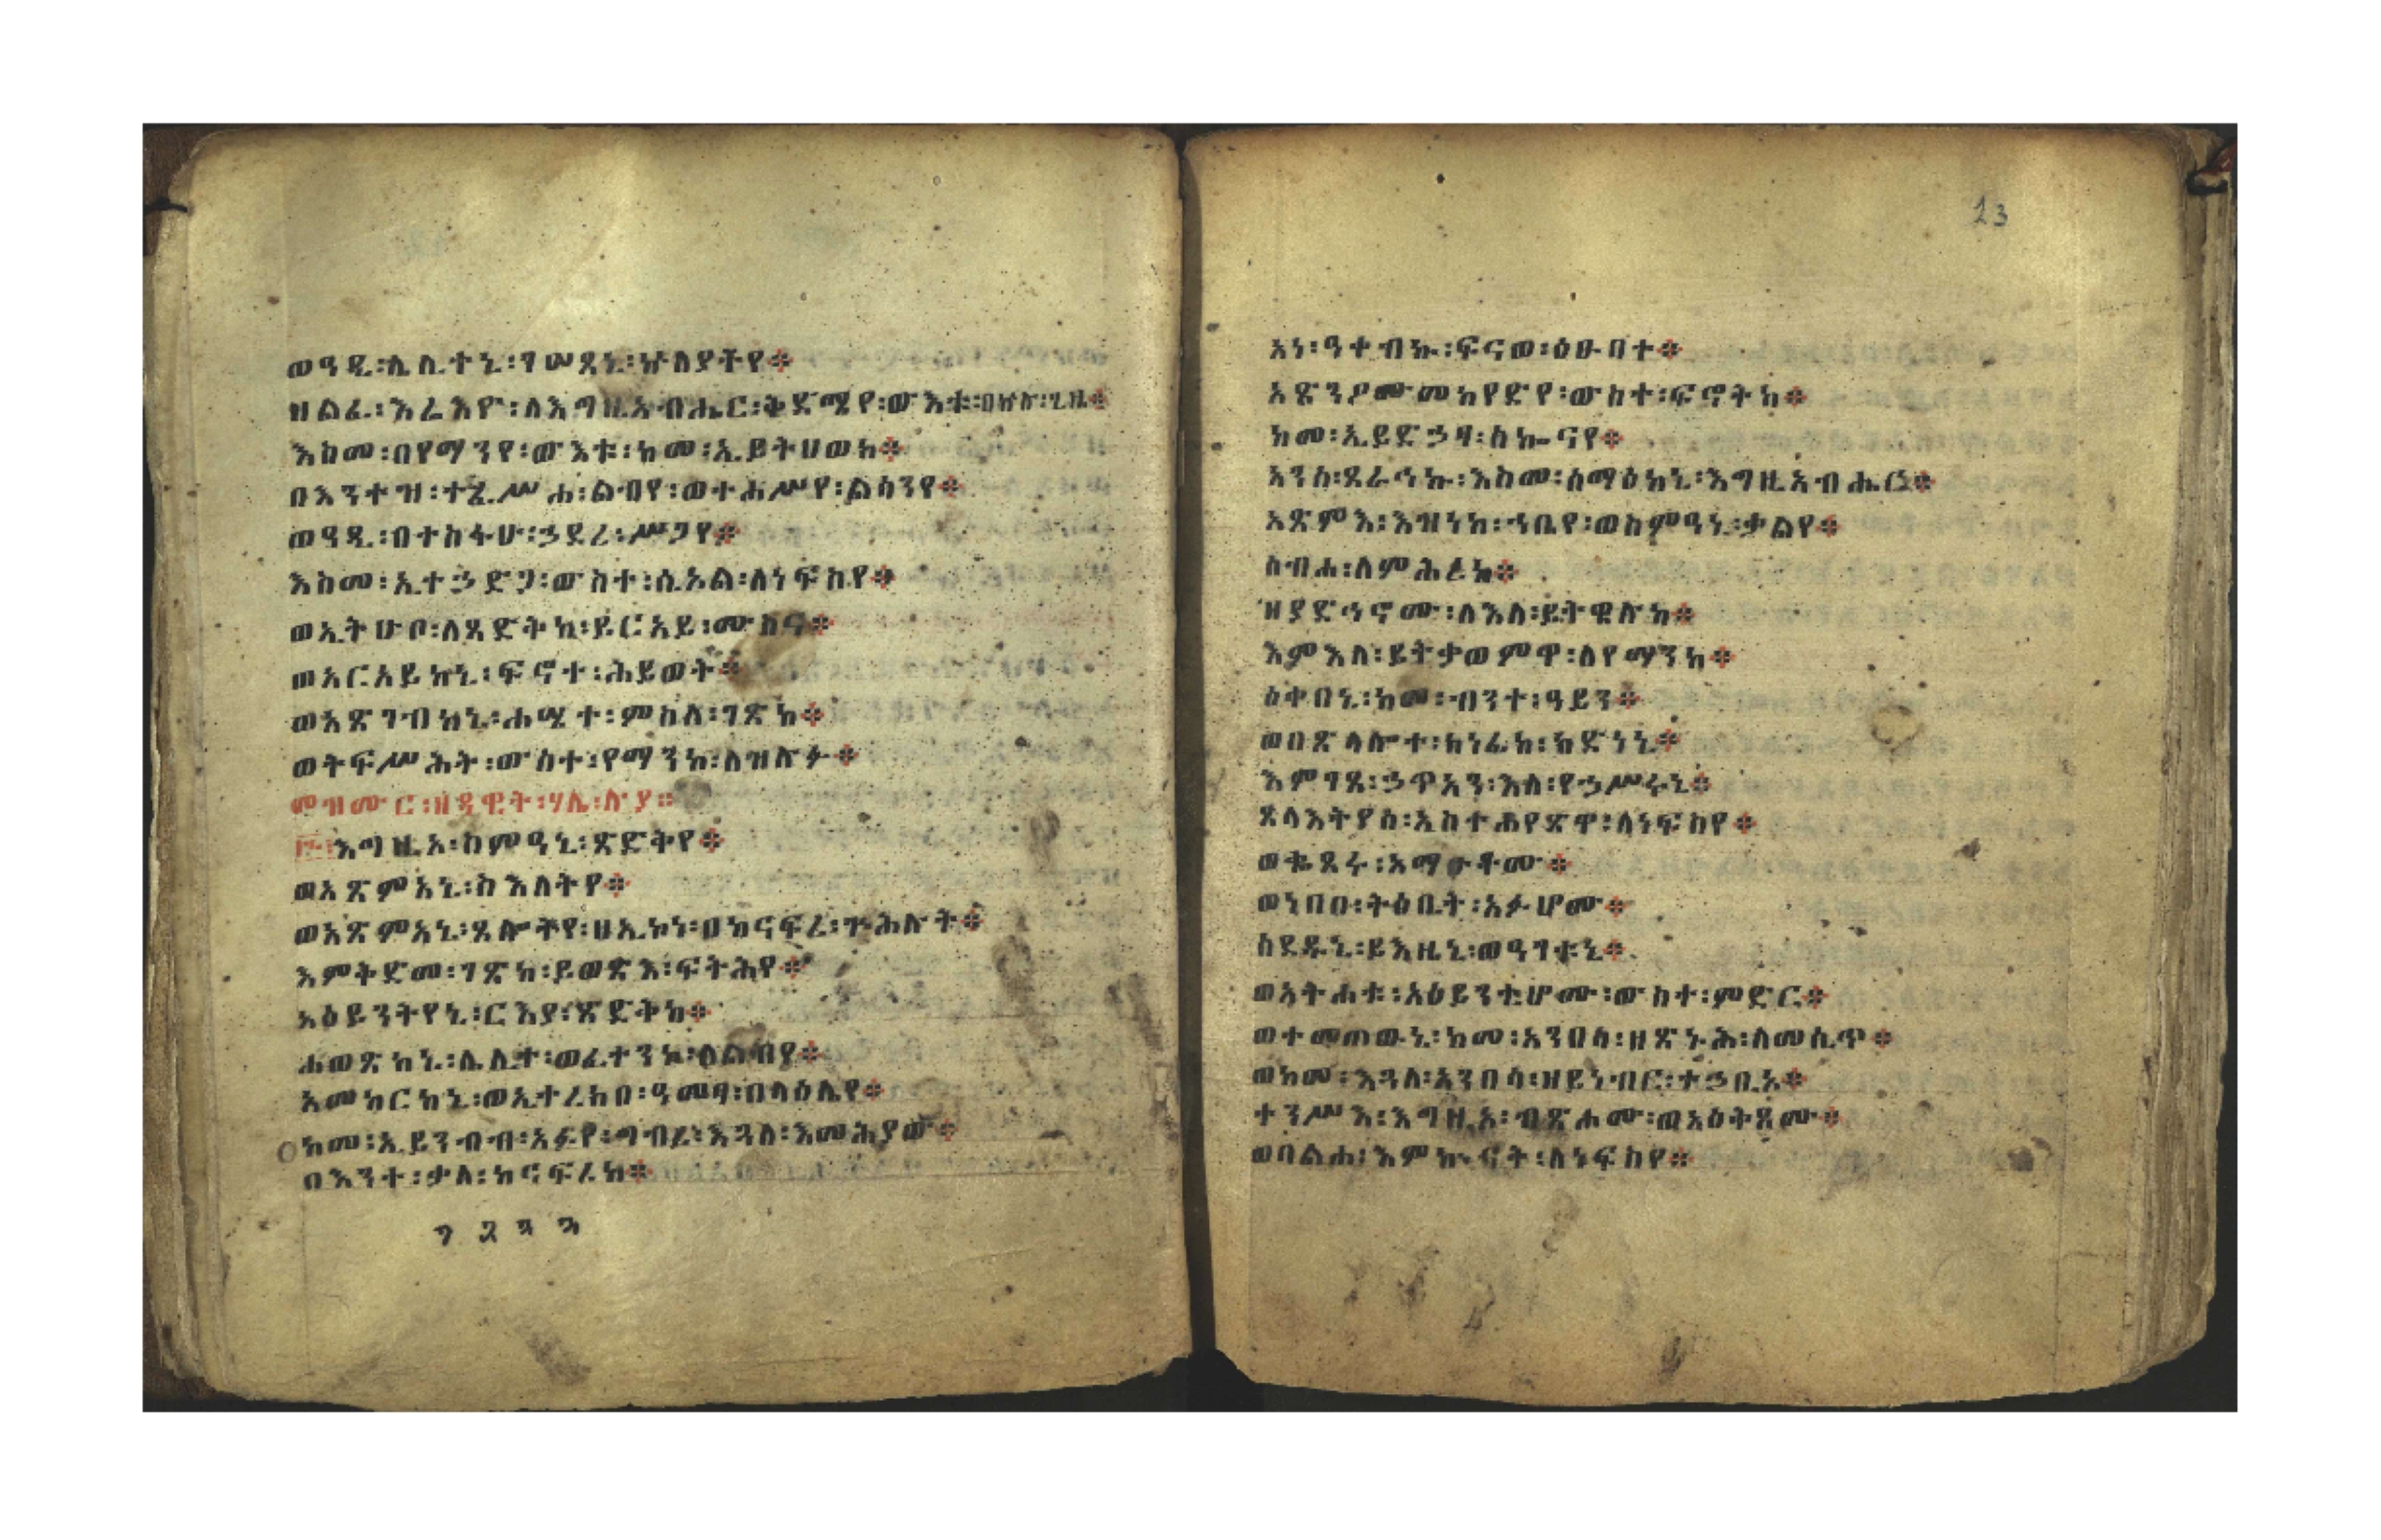 ወዓዲ፡ሌሊተኒ፡ገሠጻኒ፡ኵለያትየ።
ዘልፈ፡እሬእዮ፡ለእግዚአብሔር፡ቅድሜየ፡ውእቱ፡በኵሉ፡ጊዜ።
እስመ፡በየማንየ፡ውእቱ፡ከመ፡ኢይትሀወክ።
በእንተዝ፡ተፈሥሐ፡ልብየ፡ወተሐሥየ፡ልሳንየ።
ወዓዲ፡በተስፋሁ፡ኃደረ፡ሥጋየ።
እስመ፡ኢተኃድጋ፡ውስተ፡ሲኦል፡ለነፍስየ።
ወኢትሁቦ፡ለጻድቅከ፡ይርአይ፡ሙስና።
ወአርአይከኒ፡ፍኖተ፡ሕይወት።
ወአጽገብከኒ፡ሐሤተ፡ምስለ፡ገጽከ።
ወትፍሥሕት፡ውስተ፡የማንከ፡ለዝሉፉ።
መዝሙር፡ዘዳዊት፡ሃሌ፡ሉያ።
፲፮፡እግዚኦ፡ስምዓኒ፡ጽድቅየ።
ወአጽምአኒ፡ስእለትየ።
ወአጽምአኒ፡ጸሎትየ፡ዘኢኮነ፡በከናፍረ፡ጕሕሉት።
እምቅድመ፡ገጽከ፡ይወፅእ፡ፍትሕየ።
አዕይንትየኒ፡ርእያ፡ጽድቅከ።
ሐወጽከኒ፡ሌሊተ፡ወፈተንኮ፡ለልብየ።
አመከርከኒ፡ወኢተረክበ፡ዓመፃ፡በላዕሌየ።
ከመ፡ኢይንብብ፡አፉየ፡ግብረ፡እጓለ፡እመሕያው።
በእንተ፡ቃለ፡ከናፍሪከ።
አነ፡ዓቀብኩ፡ፍናወ፡ዕፁበተ።
አጽንዖሙ፡መከየድየ፡ውስተ፡ፍኖትከ።
ከመ፡ኢይድኃፃ፡ሰኰናየ።
አንሰ፡ጸራኅኩ፡እስመ፡ሰማዕከኒ፡እግዚአብሔር።
አጽምእ፡እዝነከ፡ኀቤየ፡ወስምዓኒ፡ቃልየ።
ሰብሐ፡ለምሕረትከ።
ዝያድኅኖሙ፡ለእለ፡ይትዌከሉከ።
እምእለ፡ይትቃወምዋ፡ለየማንከ።
ዕቀበኒ፡ከመ፡ብንተ፡ዓይን።
ወበጽላሎተ፡ክነፊከ፡ክድነኒ።
እምገጸ፡ኃጥአን፡እለ፡የኃሥሩኒ።
ጸላእትየሰ፡አስተሐየጽዋ፡ለነፍስየ።
ወቈጸሩ፡አማዑቶሙ።
ወነበበ፡ትዕቢት፡አፉሆሙ።
ሰደዱኒ፡ይእዜኒ፡ወዓገቱኒ።
ወአትሐቱ፡አዕይንቲሆሙ፡ውስተ፡ምድር።
ወተመጠዉኒ፡ከመ፡አንበሳ፡ዘጽኑሕ፡ለመሲጥ።
ወከመ፡እጓለ፡አንበሳ፡ዝይነብር፡ተኃቢኦ።
ተንሥእ፡እግዚኦ፡ብጽሖሙ፡ወአዕቅጾሙ።
ወባልሐ፡እምኵናት፡ለነፍስየ።